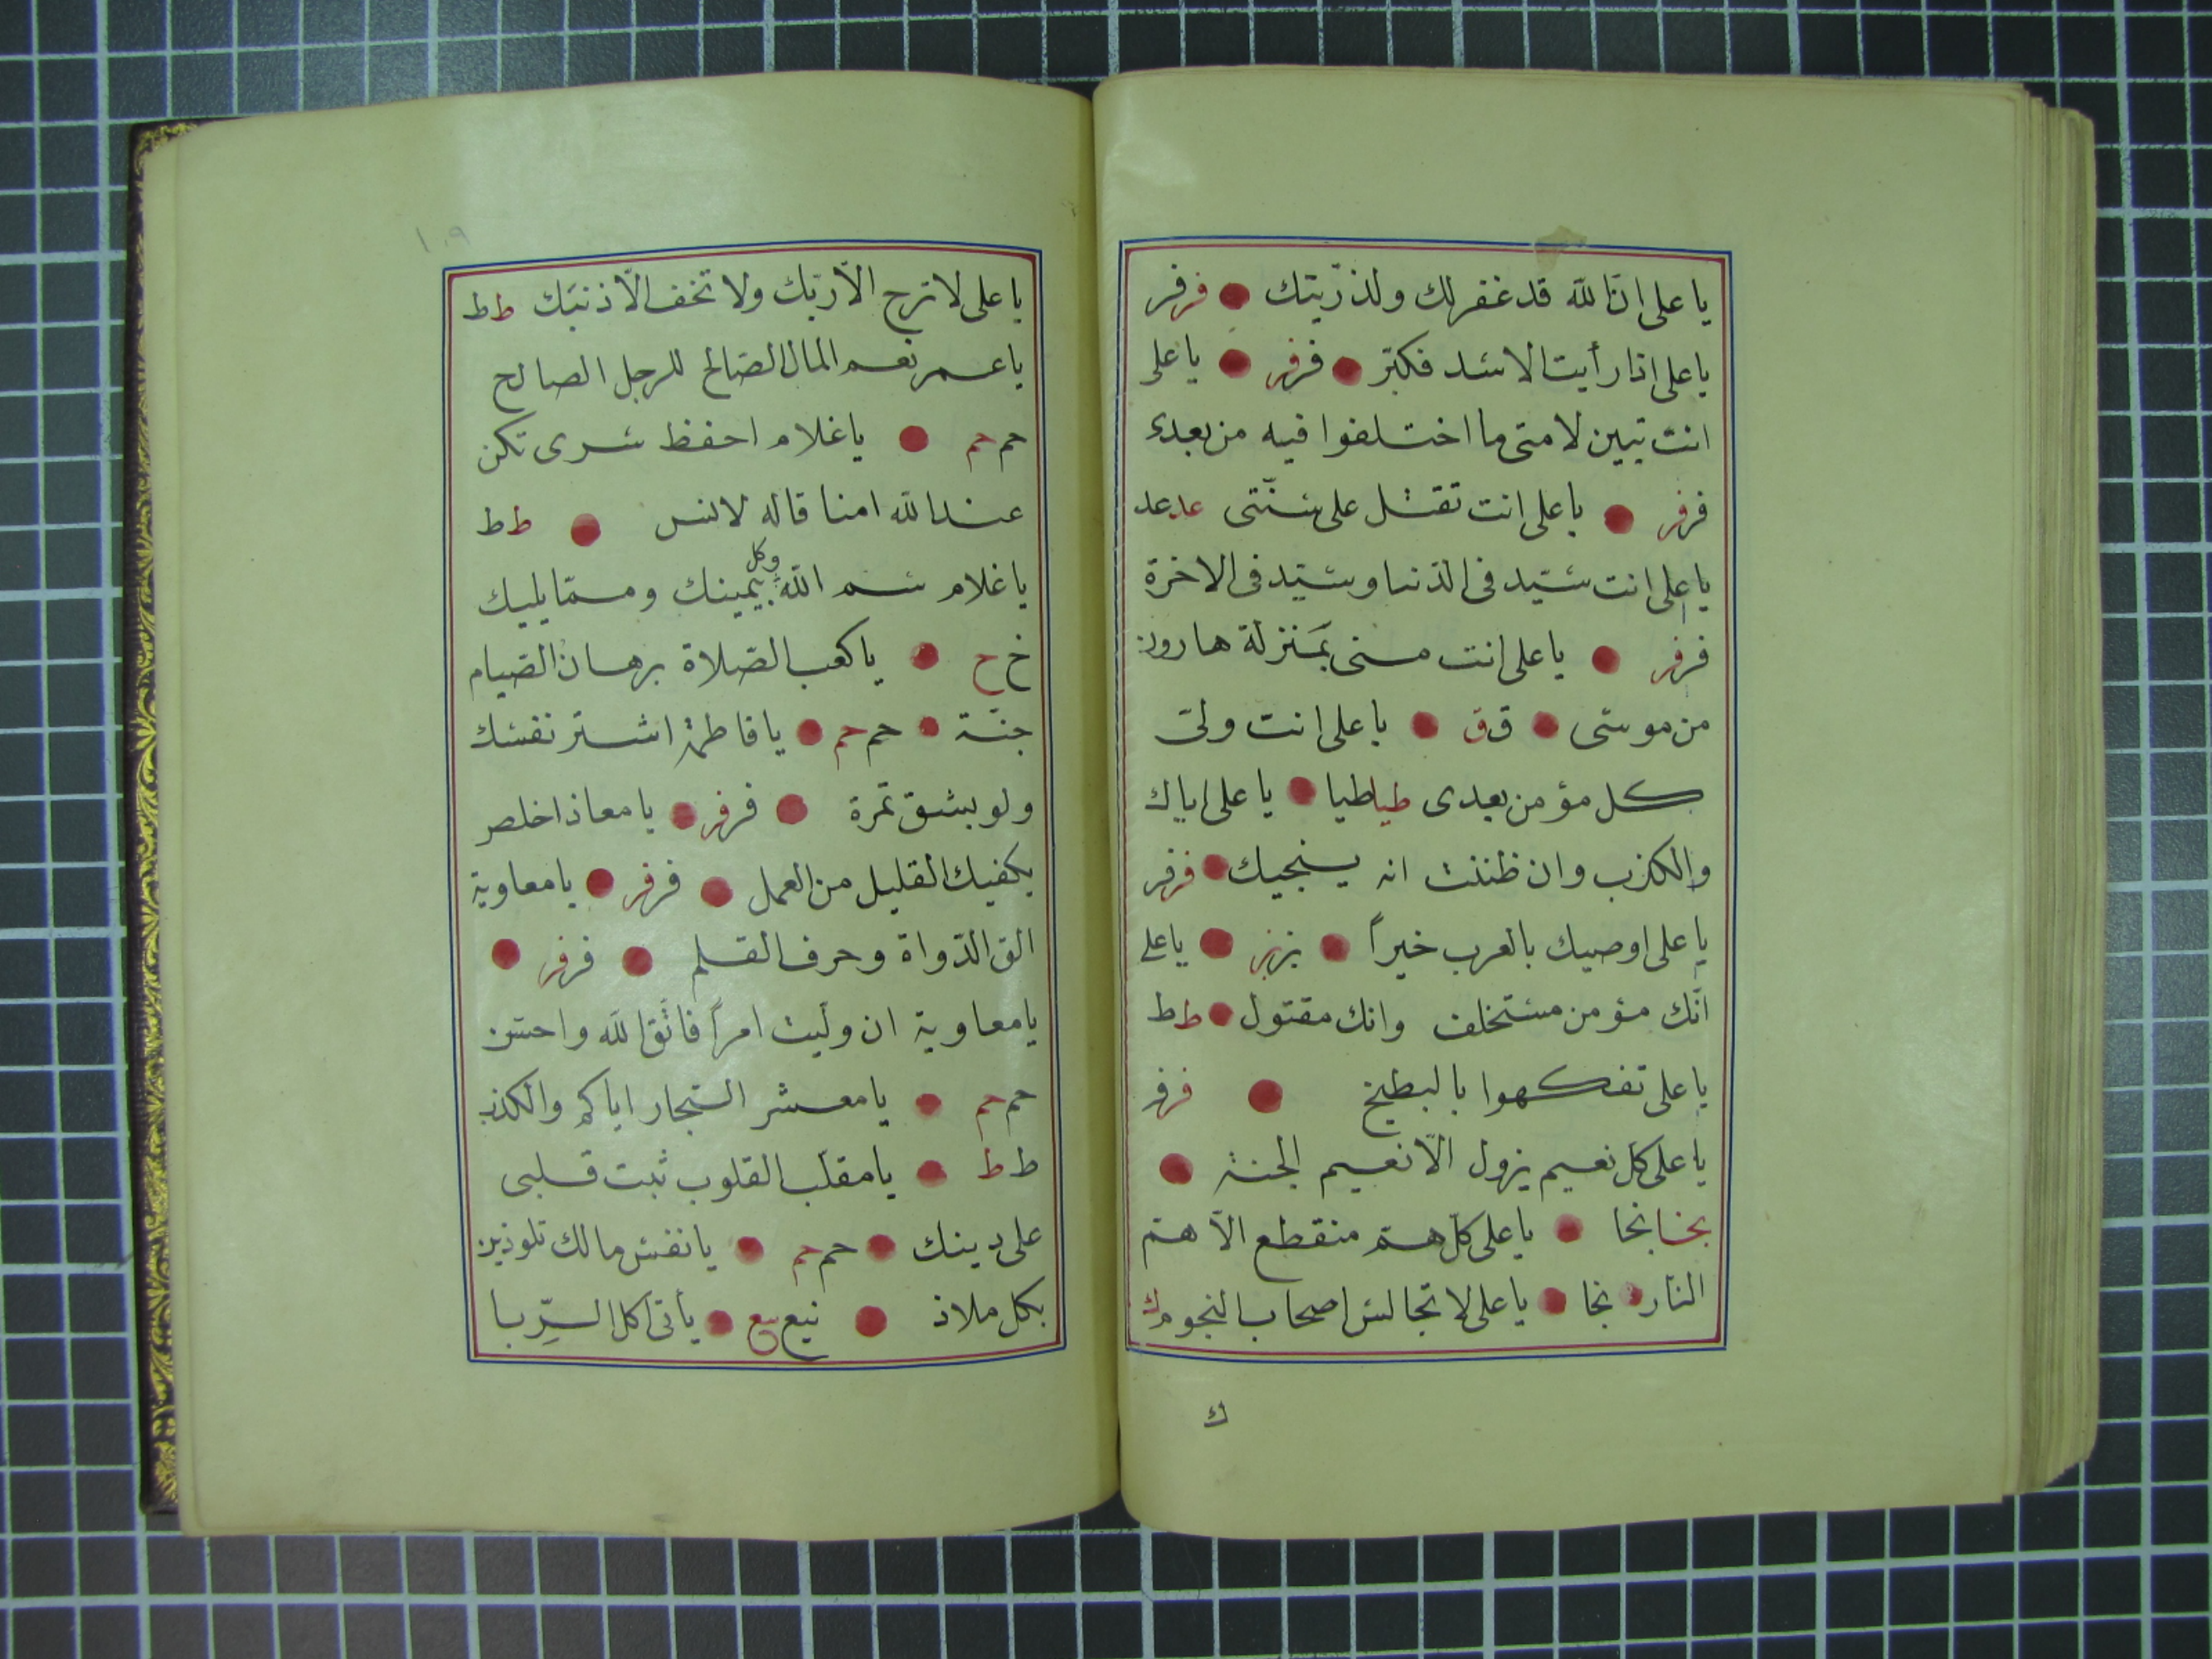 يا على ان الله قد غفر لك ولذريتك فر فر
يا على اذا رأيت الاسد فكبّر فر فر يا على
انت تبين لامتى ما اختلفوا فيه من بعدى
فر فر يا على انت تقتل على سنّتى عد عد
يا على انت سيّد فى الدنيا وسيّد فى الاخرة
فر فر يا على انت منى بمنزلة هارون
من موسى ق ق يا على انت ولىّ
كل مؤمن بعدى طيا طيا يا على اياك
والكذب وان ظننت انه ينجيك فر فر
يا على اوصيك بالعرب خيراً بز بز يا على
انّك مؤمن مستخلف وانك مقتول ط ط
يا على تفكهوا بالبطيخ فر فر
يا على كل نعيم يزول الّا نعيم الجنة
نجا نجا يا على كلّ همّ منقطع الّا همّ
النار نجا يا على لا تجالس اصحاب النجوم ك
ك
١٠٩
يا على لا ترج الّا ربّك ولا تخف الّا ذنبك ط ط
يا عمر نعم المال الصالح للرجل الصالح
حم حم يا غلام احفظ سرى تكن
عند الله امنا قاله لانس ط ط
يا غلام سم الله وكل بيمينك وممّا يليك
خ خ يا كعب الصّلاة برهان الصّيام
جنّة حم حم يا فاطمة اشتر نفسك
ولو بشق تمرة فر فر يا معاذ اخلص
يكفيك القليل من العمل فر فر يا معاوية
الق الدّواة وحرف القلم فر فر
يا معاوية ان ولّيت امراً فاتّق الله واحسن
حم حم يا معشر التجار اياكم والكذب
ط ط يا مقلّب القلوب ثبت قلبى
على دينك حم حم يا نفس مالك تلوذين
بكل ملاذ نيع نيع يأتى اكل الرّبا